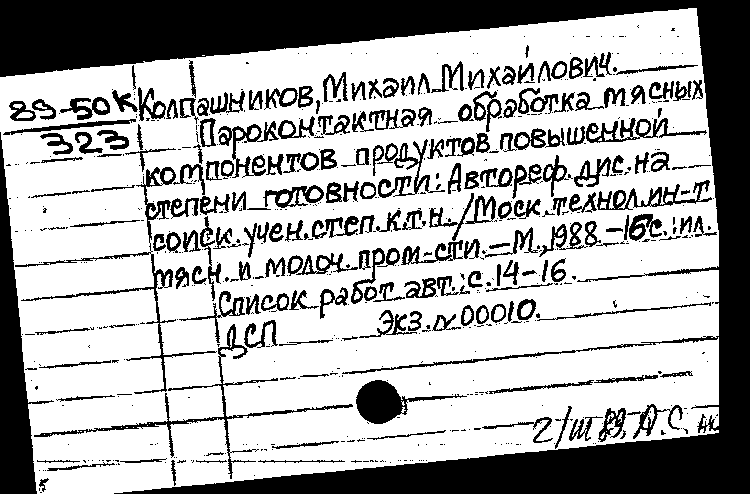 89-50К
323
Колпашников, Михаил Михайлович.
Пароконтактная обработка мясных
компонентов продуктов повышенной
степени готовности: Автореф. дис. на
соиск. учен. степ. к.т.н. / Моск. технол. ин-т
мясн. и молоч. пром-сти. — М., 1988. — 16 с.: ил.
Список работ авт.: с. 14-16.
ДСП Экз. № 00010.
2/III 89. А.С.